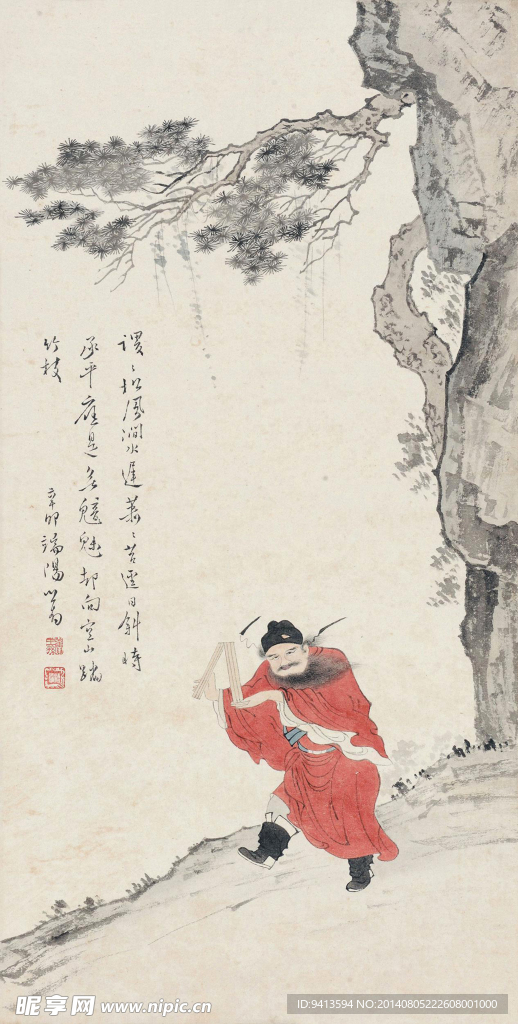 謖〻松風澗水遲蕭〻苔逕日斜時
承平應是無魑魅却向空山踏
竹枝
辛卯端陽心畬
昵享网 www.nipic.cn
ID:9413594 NO:20140805222608001000